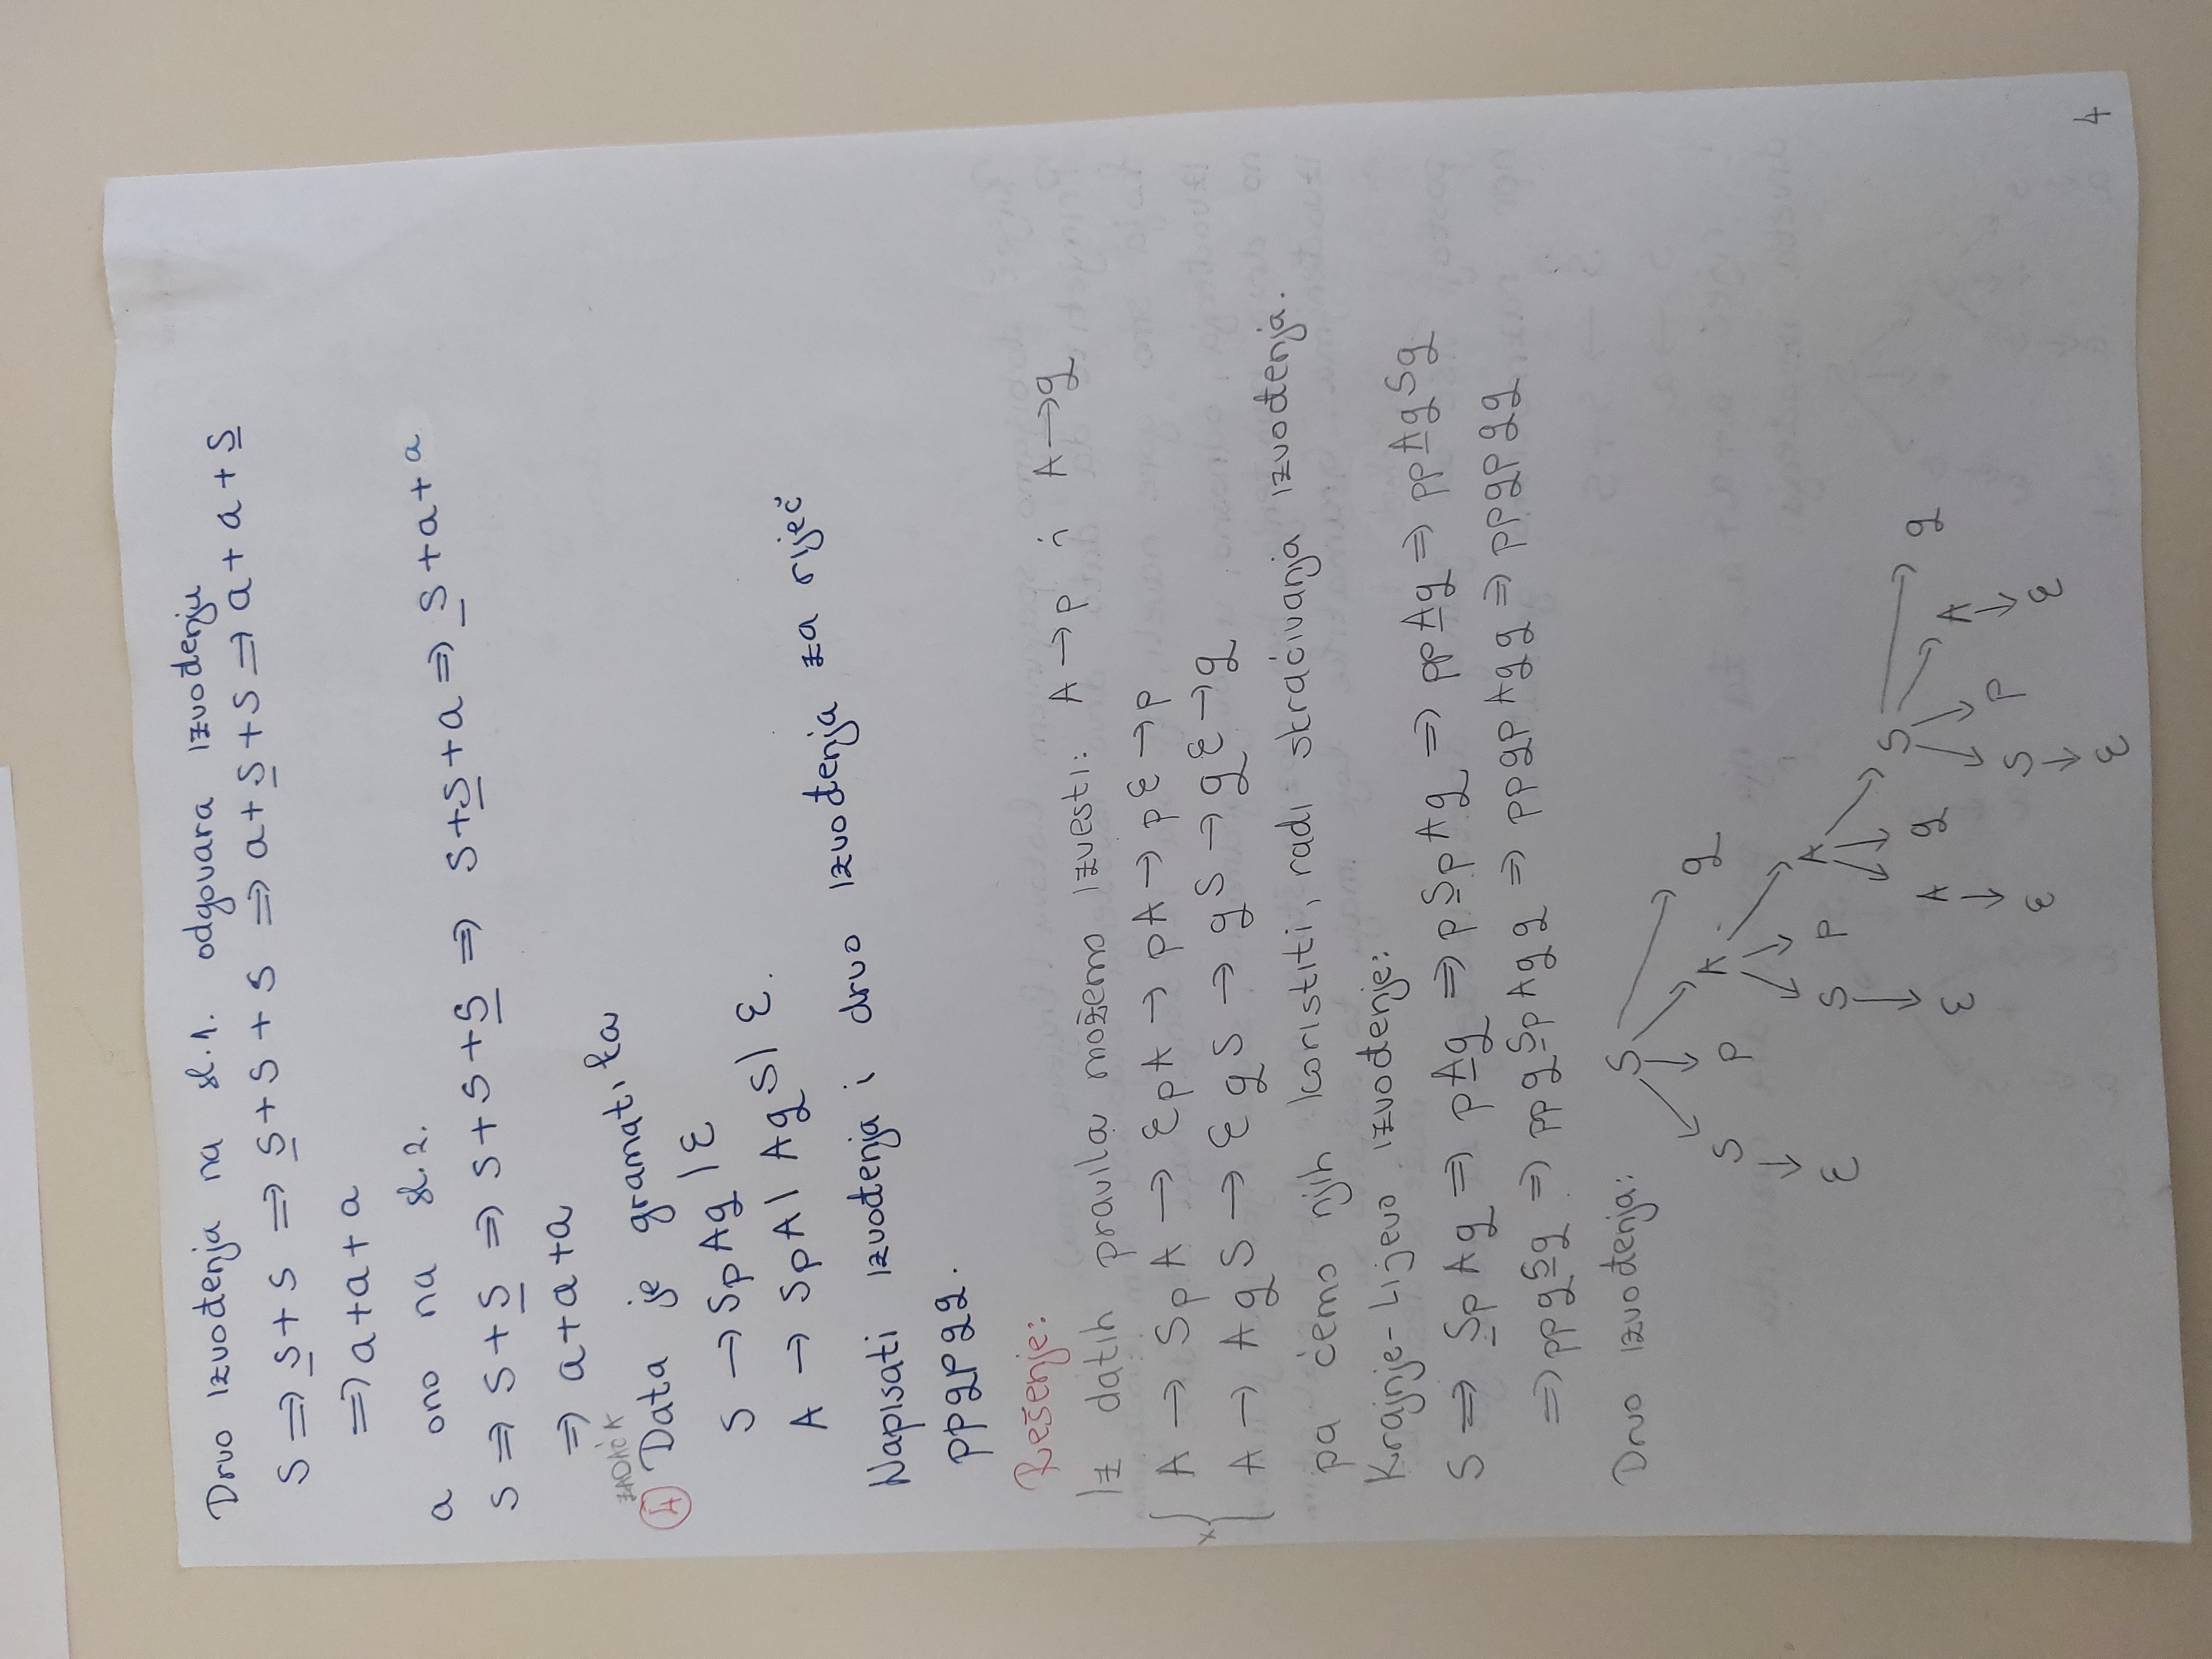 Drvo izvođenja na sl.1. odgovara izvođenju
S ⇒ S+S ⇒ S+S+S ⇒ a+S+S ⇒ a+a+S
⇒ a+a+a
a ono na sl.2.
S ⇒ S+S ⇒ S+S+S ⇒ S+S+a ⇒ S+a+a
⇒ a+a+a
ZADAĆA
4 Data je gramatika
S → SpAq | ε
A → SpA | AqS | ε.
Napisati izvođenja i drvo izvođenja za riječ
ppqpqq.
Rešenje:
Iz datih pravila možemo izvesti: A → p i A → q
A → SpA → εpA → pA → pε → p
x { A → AqS → εqS → qS → qε → q
pa ćemo njih koristiti, radi skraćivanja izvođenja.
Krajnje-lijevo izvođenje:
S ⇒ SpAq ⇒ pAq ⇒ pSpAq ⇒ ppAq ⇒ ppAqSq
⇒ ppqSq ⇒ ppqSpAqq ⇒ ppqpAqq ⇒ ppqpqq
Drvo izvođenja: S
S p A q
ε S p A
ε A q S
ε S p A q
ε ε
4